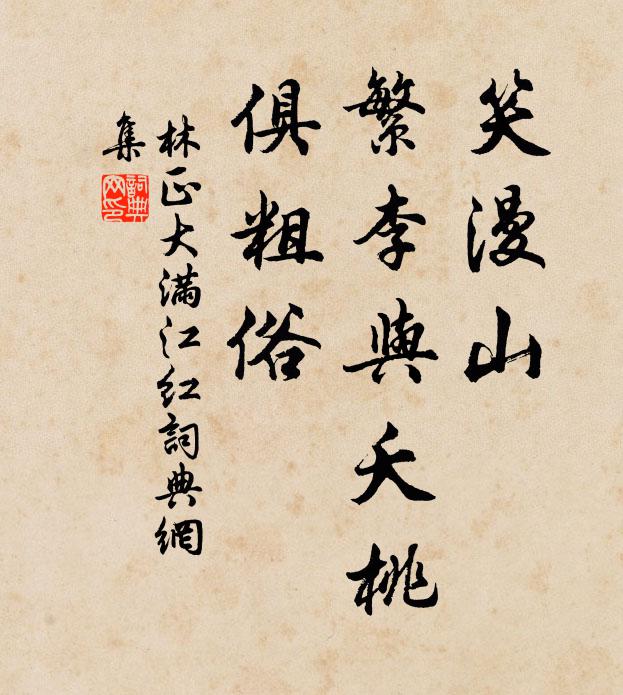 笑漫山
繁李與夭桃
俱粗俗
林正大滿江红詞典網
集
詞典
网印